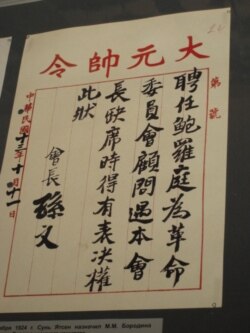 大元帥令
第 號
聘任鮑羅庭為革命
委員會顧問遇本會
長缺席時得有表決權
此狀
會長 孫文
中華民國十三年十月十一日
ября 1924 г. Сунь Ятсен назначил М.М. Бородина